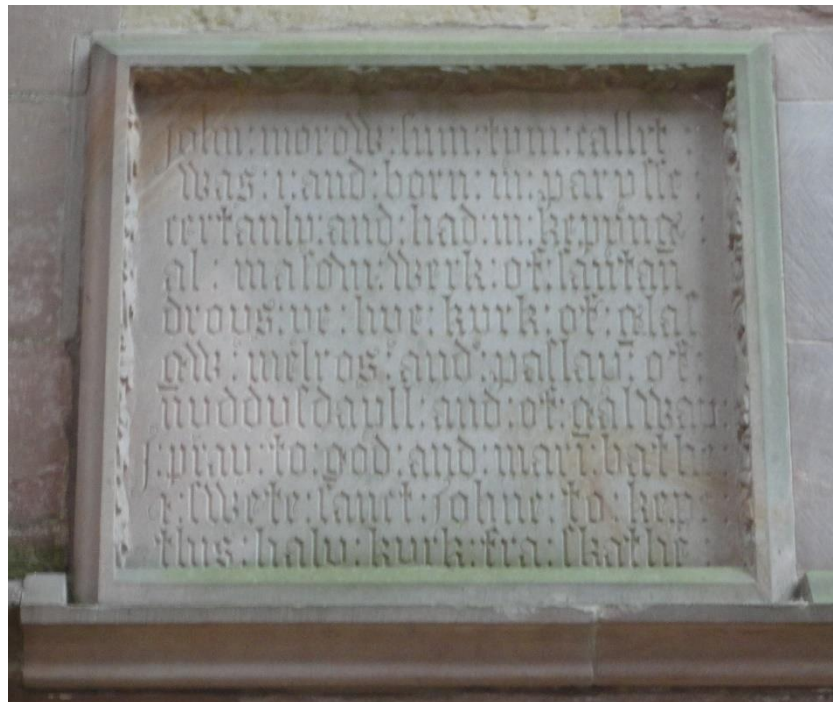 john : morow : sum : tym : callit :
was : i : and : born : in : parysse :
certanly : and : had : in : kepyng :
al : mason : werk : of : santan
droys : ye : hye : kyrk : of : glas
gw : melros : and : paslay : of :
nyddysdayll : and : of : galway :
i : pray : to : god : and : mari : bathe :
& : swete : sanct : johne : to : kepe :
this : haly : kyrk : fra : skathe :